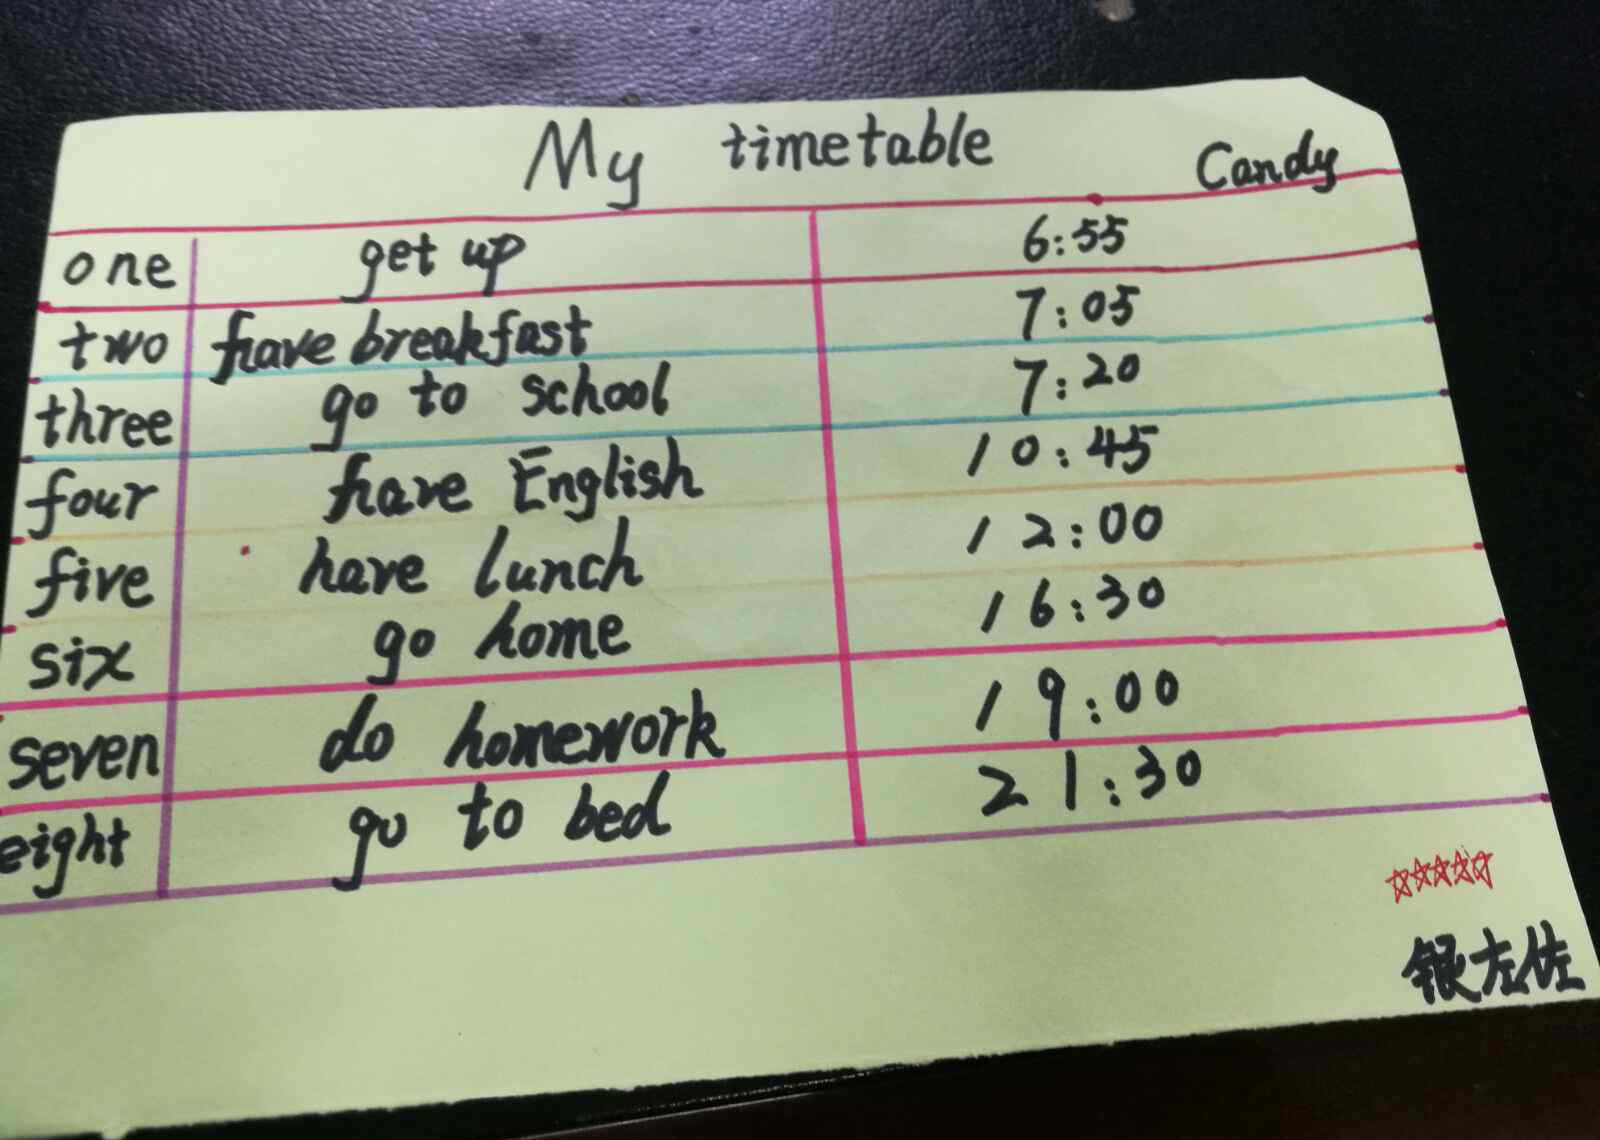 My timetable Candy
one get up 6:55
two have breakfast 7:05
three go to school 7:20
four have English 10:45
five have lunch 12:00
six go home 16:30
seven do homework 19:00
eight go to bed 21:30
银左佐